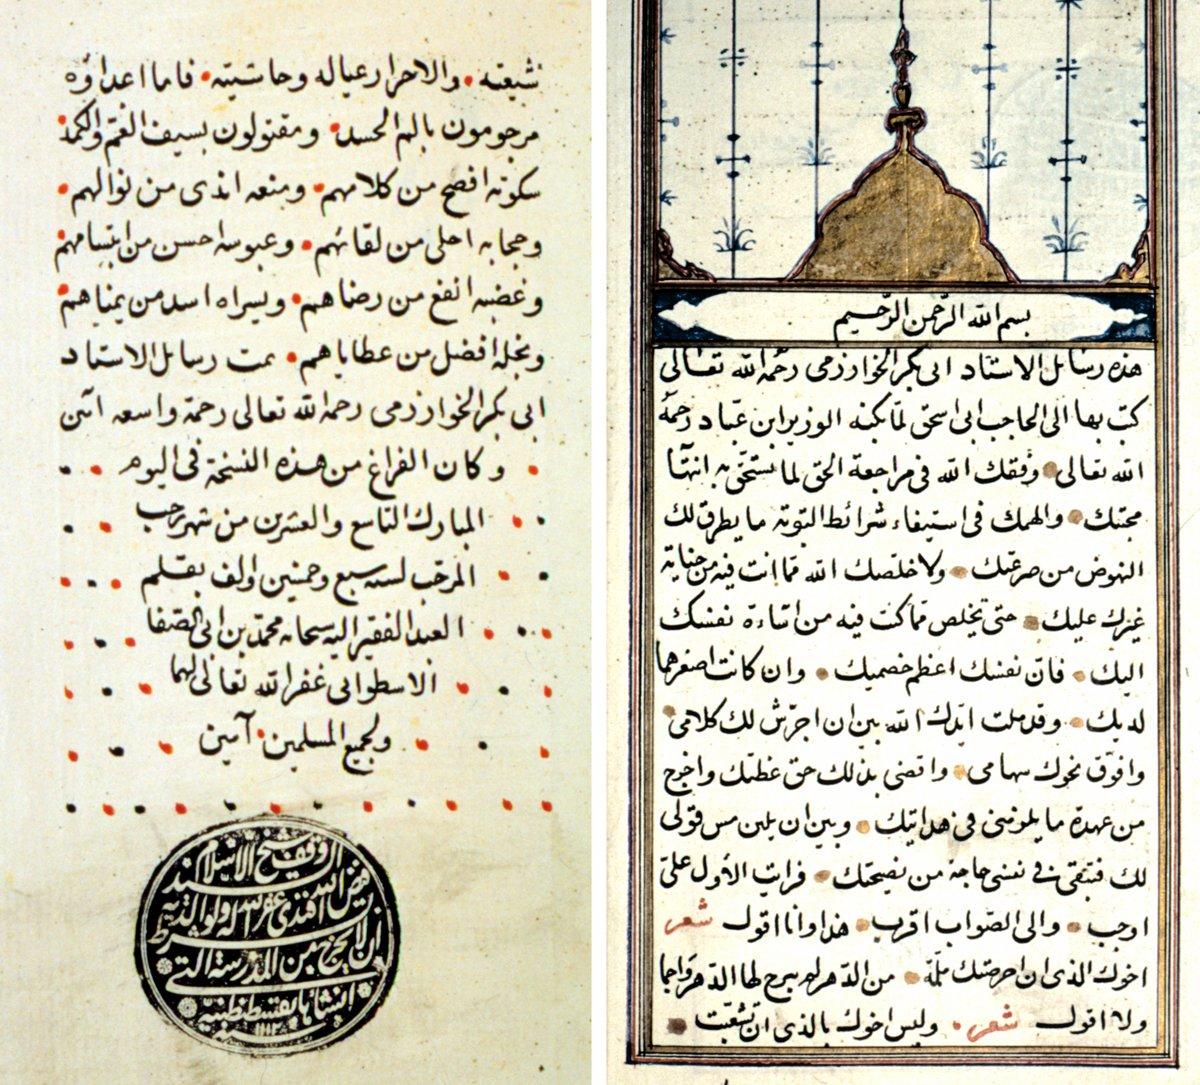 بسم الله الرّحمن الرّحيم
هذه رسائل الاستاد ابى بكر الخوارزمى رحمه الله تعالى
كتب بها الى الحاجب ابى اسحق لمّا نكبه الوزير ابن عبّاد رحمه
الله تعالى وفقك الله فى مراجعة الحق لما تستحق به انتها
محنتك والهمك فى استيفاء شرائط التوبة ما يطرق لك
النهوض من صرعتك ولا خلصك الله ممّا انت فيه من جناية
غيرك عليك حتى يخلص مما كنت فيه من اساءة نفسك
اليك فان نفسك اعظم خصميك وان كانت اصغرهما
لديك وقد ملت ايدك الله بين ان اجرّش لك كلامى
وافوّق نحوك سهامى واقضى بذلك حق عظتك واخرج
من عهدة ما يلزمنى فى هدايتك وبين ان يلين مس قولى
لك فتبقى فى نفسى حاجة من نصيحتك فرايت الأول علىّ
اوجب والى الصّواب اقرب هذا وانا اقول شعر
اخوك الذى ان احرضتك ملمّة من الدّهر لم يبرح لها الدّهر واجما
ولا اقول شعر وليس اخوك بالذى ان تشعّبت
شيعته والاحرار عياله وحاشيته فاما اعداؤه
مرجومون بالهم الحسد ومقتولون بسيف الغم والكمد
سكوته افصح من كلامهم ومنعه اندى من نوالهم
وحجابه احلى من لقائهم وعبوسه احسن من ابتسامهم
وغضبه انفع من رضاهم ويسراه اسد من يمناهم
وبخله افضل من عطاياهم تمت رسائل الاستاد
ابى بكر الخوارزمى رحمه الله تعالى رحمة واسعه امين
وكان الفراغ من هذه النسخة فى اليوم
المبارك التاسع والعشرين من شهر رجب
المرجب لسنه سبع وخمسين والف بقلم
العبد الفقير اليه سبحانه محمد بن ابى الصّفا
الاسطوانى غفر الله تعالى لهما
ولجميع المسلمين آمين
وقف شيخ الاسلام السيد
فيض الله افندى غفر الله له ولوالديه
بشرط ان لا يخرج من المدرسة التى
انشاها بقسطنطينية
١١١٢